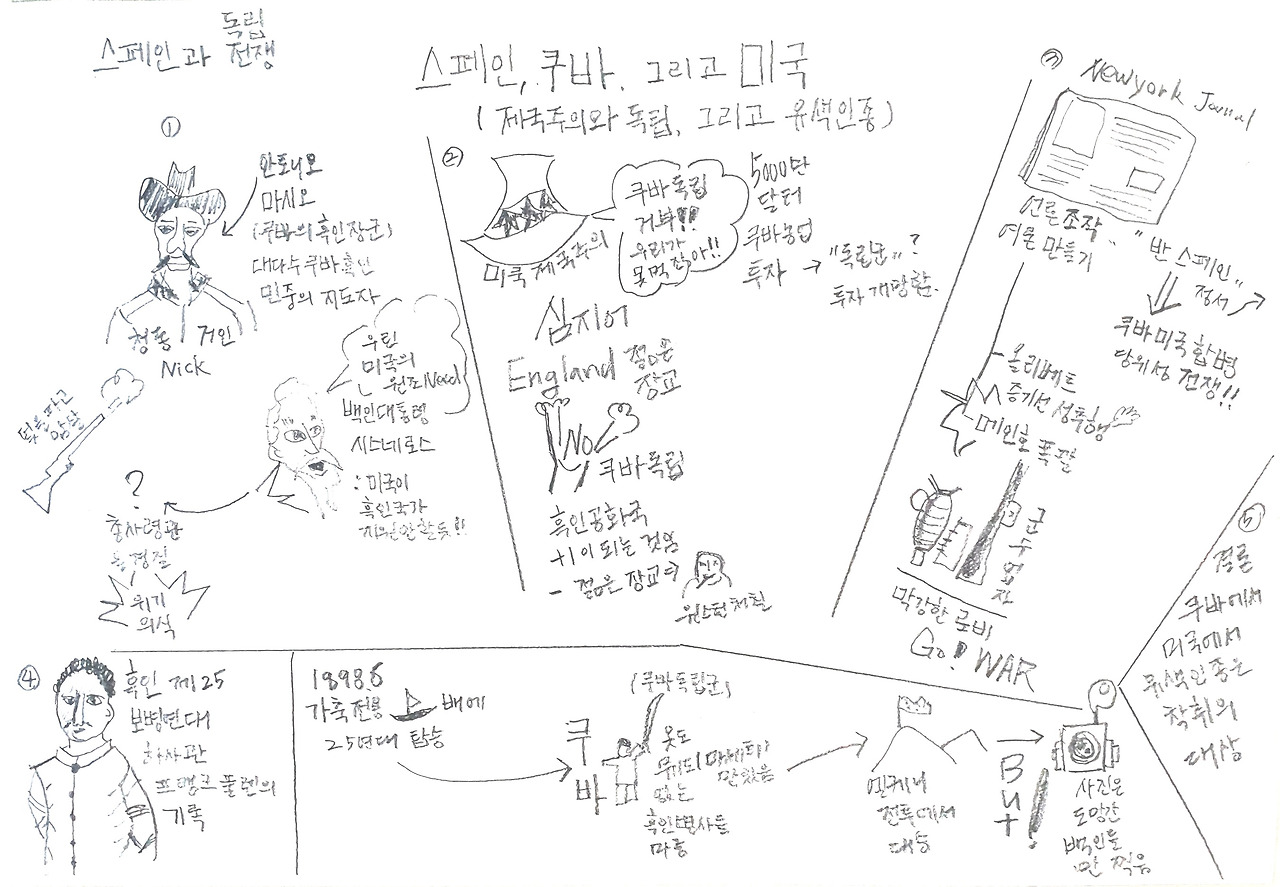 스페인과 독립
전쟁
스페인, 쿠바, 그리고 미국
(제국주의와 독립, 그리고 유색인종)
①
안토니오
마시오
(쿠바의 흑인장군)
대다수 쿠바 흑인
민중의 지도자
청동 거인
Nick
우린
미국의
원조 Need
백인대통령
시스네로스
: 미국이
흑인국가
지원안할듯!!
?
총사령관
위기
의식
②
쿠바독립
거부!!
우리가
못먹잖아!!
미국 제국주의
5000만
달러
쿠바농업
투자 → "독립군"?
투자 개망함.
심지어
England 젊은
장교
No
쿠바독립
흑인공화국
+1이 되는 것임
- 젊은 장교
윈스턴 처칠
③
Newyork Journal
언론조작..
여론 만들기
"반 스페인"
정서
쿠바미국합병
당위성 전쟁!!
- 올리베트
증기선 성추행
메인호 폭팔
군수업자
막강한 로비
Go! WAR
④
흑인 제25
보병연대
하사관
프랭크 풀렌의
기록
1898.6
가축전용 배에
25연대 탑승
쿠바
(쿠바독립군)
옷도
무기도(마세테)
없는
흑인병사들
마중
엘카니
전투에서
대승
But!
사진은
도망간
백인들
만 찍음
⑤
결론
쿠바에서
미국에서
유색인종은
착취의
대상